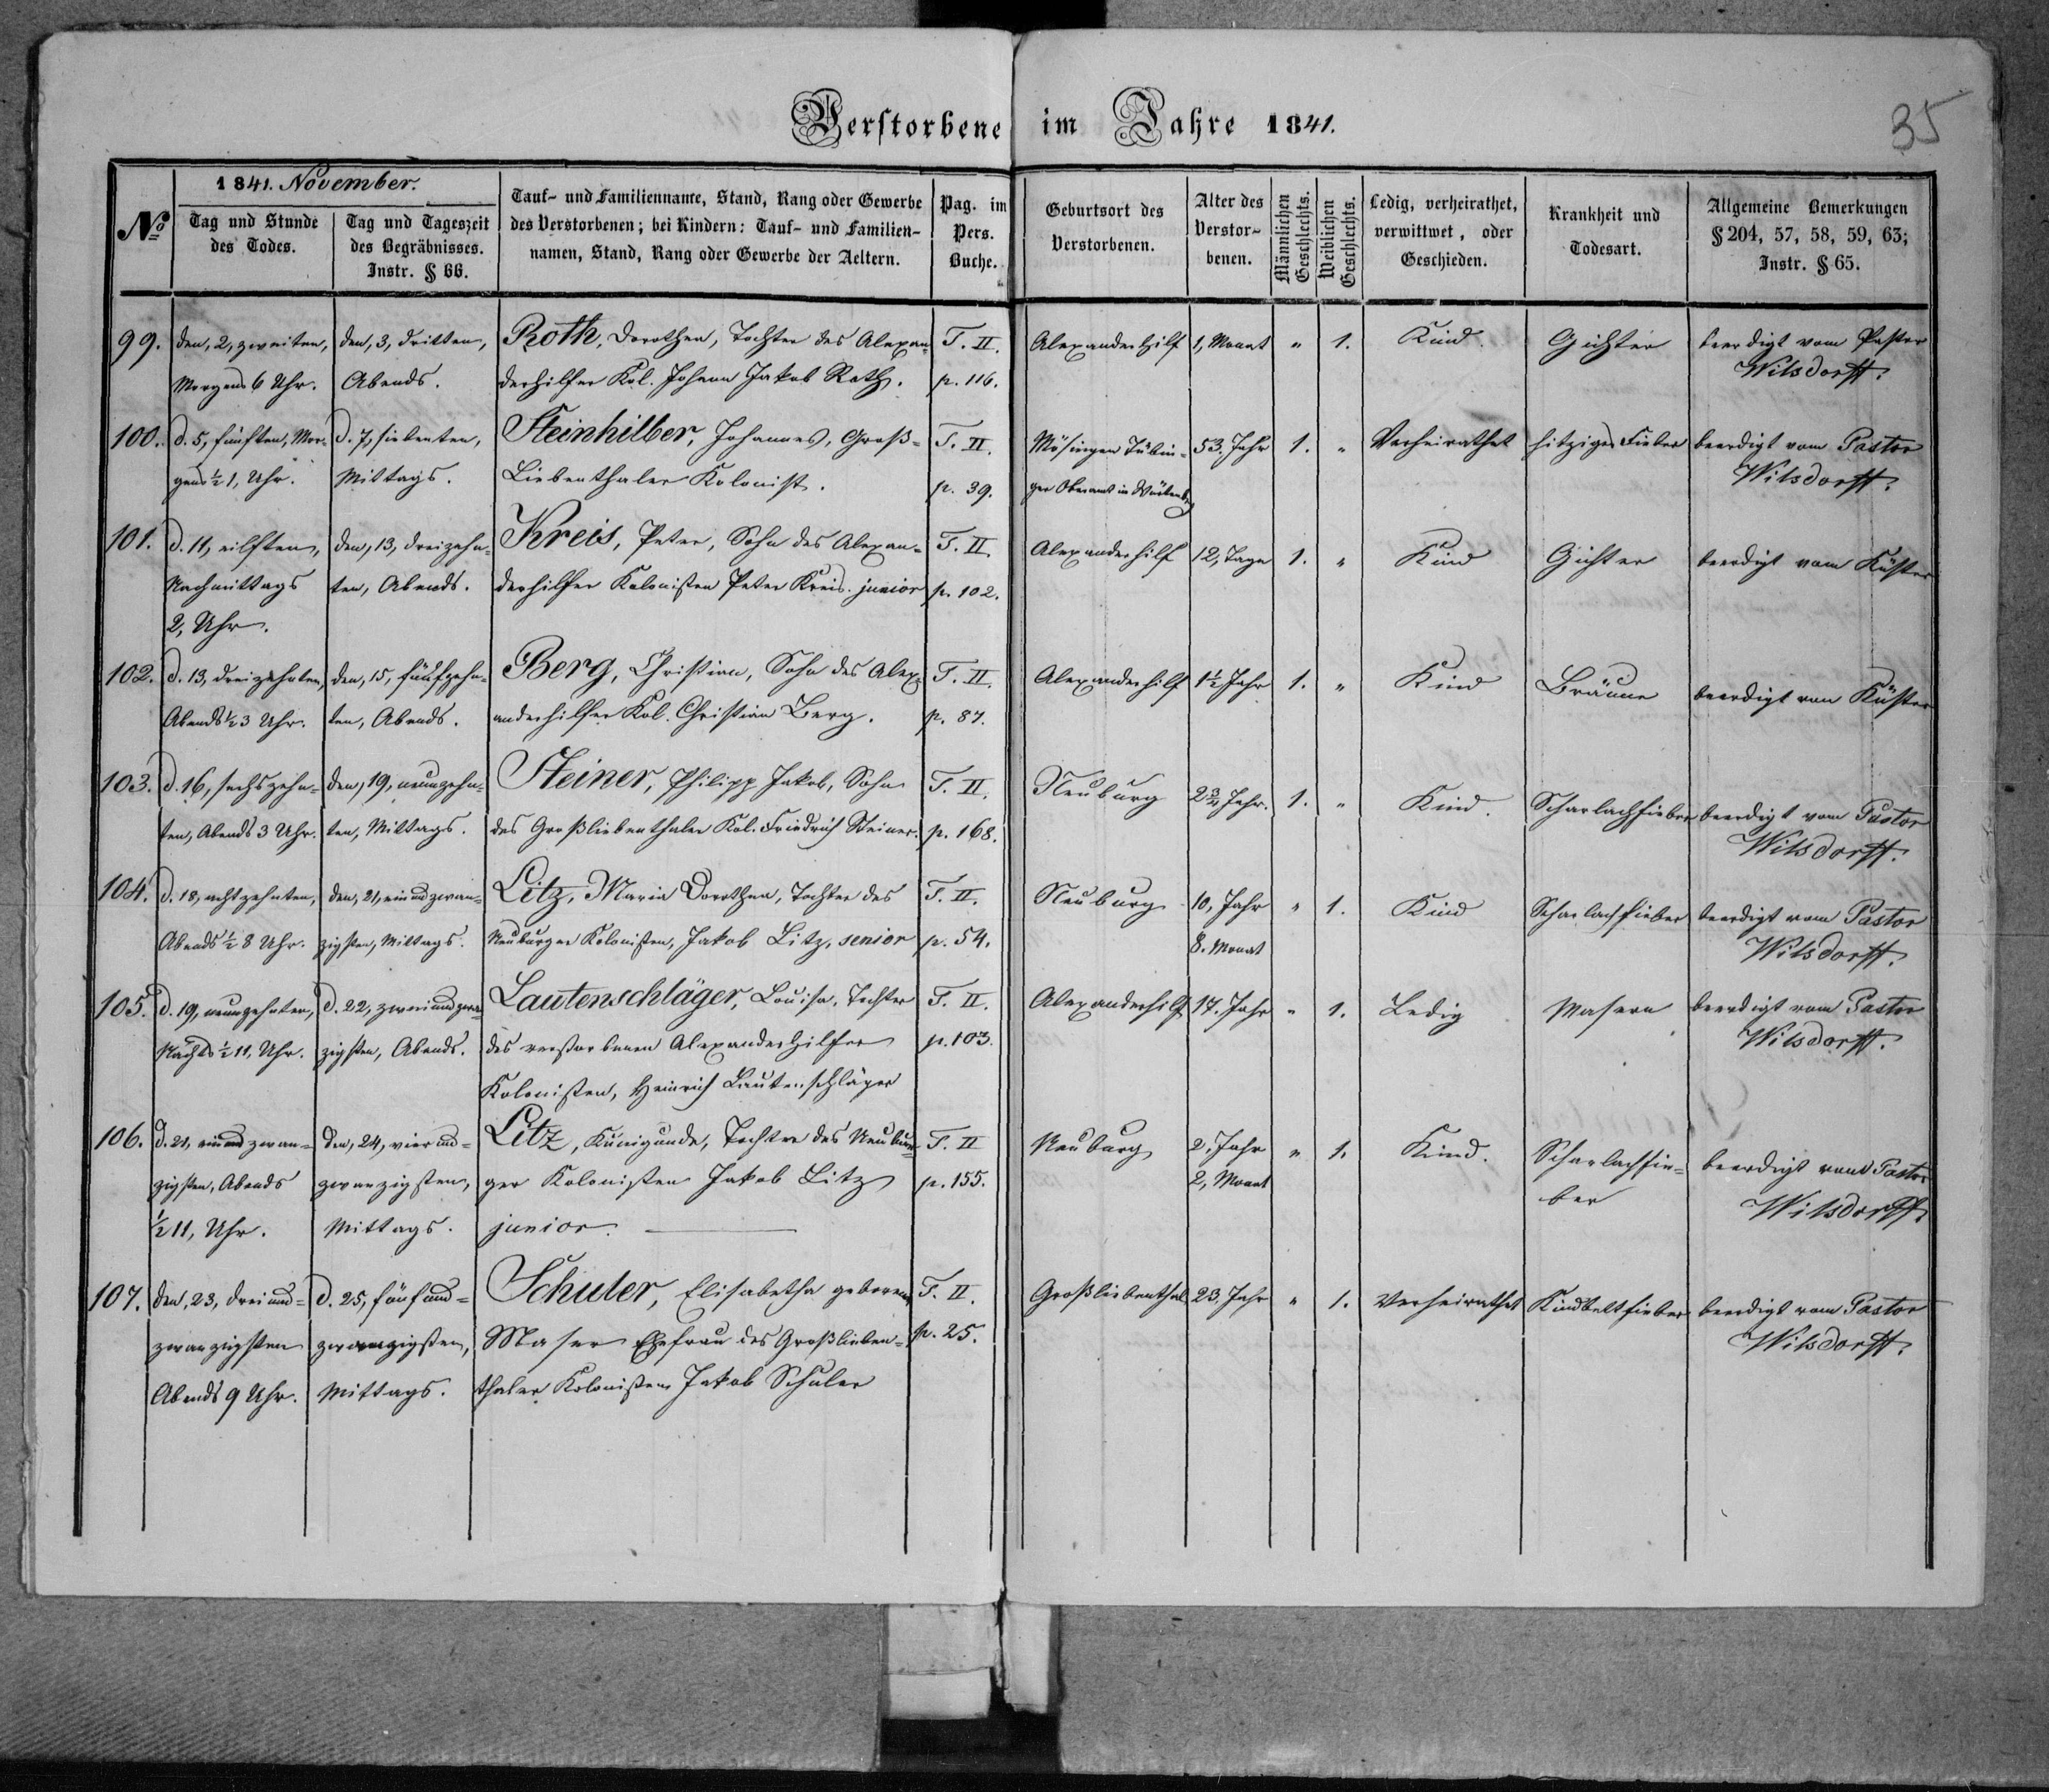 Verstorbene im Jahre 1841.
35
1841. November.
No
Tag und Stunde des Todes.
Tag und Tageszeit des Begräbnisses. Instr. § 66.
Tauf- und Familienname, Stand, Rang oder Gewerbe
des Verstorbenen; bei Kindern: Tauf- und Familien-
namen, Stand, Rang oder Gewerbe der Aeltern.
Pag. im Pers. Buche.
Geburtsort des Verstorbenen.
Alter des Verstor-benen.
Männlichen Geschlechts.
Weiblichen Geschlechts.
Ledig, verheirathet, verwittwet, oder Geschieden.
Krankheit und Todesart.
Allgemeine Bemerkungen § 204, 57, 58, 59, 63; Instr. § 65.
99. den, 2, zweiten, den, 3, dritten, Roth, Dorothea, Tochter des Alexan- T. II. Alexanderhilf 1, Monat " 1. Kind. Gichter beerdigt vom Pastor
Morgens 6 Uhr. Abends. derhilfer Kol. Johann Jakob Roth. p. 116. Wilsdorff.
100. d. 5, fünften, Mor- d. 7, siebenten, Steinhilber, Johannes, Groß- T. II. Mösingen Tübin- 53. Jahr 1. " Verheirathet hitziges Fieber beerdigt vom Pastor
gens ½ 1, Uhr. Mittags. Liebenthaler Kolonist. p. 39. ger Oberamt in Würtenbg Wilsdorff.
101. d. 11, eilften, den, 13, dreizehn- Kreis, Peter, Sohn des Alexan- T. II. Alexanderhilf 12, Tage 1. " Kind Gichter beerdigt vom Küster
Nachmittags ten, Abends. derhilfer Kolonisten Peter Kreis. junior p. 102.
2, Uhr.
102. d. 13, dreizehnten, den, 15, fünfzehn- Berg, Christian, Sohn des Alex- T. II. Alexanderhilf 1½ Jahr 1. " Kind Bräune beerdigt vom Küster
Abends ½ 3 Uhr. ten, Abends. anderhilfer Kol. Christian Berg. p. 87.
103. d. 16, sechszehn- den, 19, neunzehn- Steiner, Philipp Jakob, Sohn T. II. Neuburg 2¾ Jahr. 1. " Kind. Scharlachfieber beerdigt vom Pastor
ten, Abends 3 Uhr. ten, Mittags. des Großliebenthaler Kol. Friedrich Steiner. p. 168. Wilsdorff.
104. d. 18, achtzehnten, den, 21, einundzwan- Litz, Maria Dorothea, Tochter des T. II. Neuburg 10, Jahr " 1. Kind Scharlachfieber beerdigt vom Pastor
Abends ½ 8 Uhr. zigsten, Mittags. Neuburger Kolonisten, Jakob Litz, senior p. 54. 8. Monat Wilsdorff.
105. d. 19, neunzehnten, d. 22, zweiundzwan- Lautenschläger, Louisa, Tochter T. II. Alexanderhilf 17. Jahr " 1. Ledig Masern beerdigt vom Pastor
Nachts ½ 11, Uhr. zigsten, Abends. des verstorbenen Alexanderhilfer p. 103. Wilsdorff.
Kolonisten, Heinrich Lautenschläger
106. d. 21, einundzwan- den, 24, vierund- Litz, Kunigunde, Tochter des Neubur- T. II Neuburg 2. Jahr " 1. Kind. Scharlachfie- beerdigt vom Pastor
zigsten, Abends zwanzigsten, ger Kolonisten Jakob Litz p. 155. 2, Monat ber Wilsdorff.
½ 11, Uhr. Mittags. junior.
107. den, 23, dreiund- d. 25, fünfund- Schuler, Elisabetha geborene T. II. Großliebenthal 23, Jahr " 1. Verheirathet Kindbettfieber beerdigt vom Pastor
zwanzigsten zwanzigsten, Maser Ehefrau des Großlieben- p. 25. Wilsdorff.
Abends 9 Uhr. Mittags. thaler Kolonisten Jakob Schuler